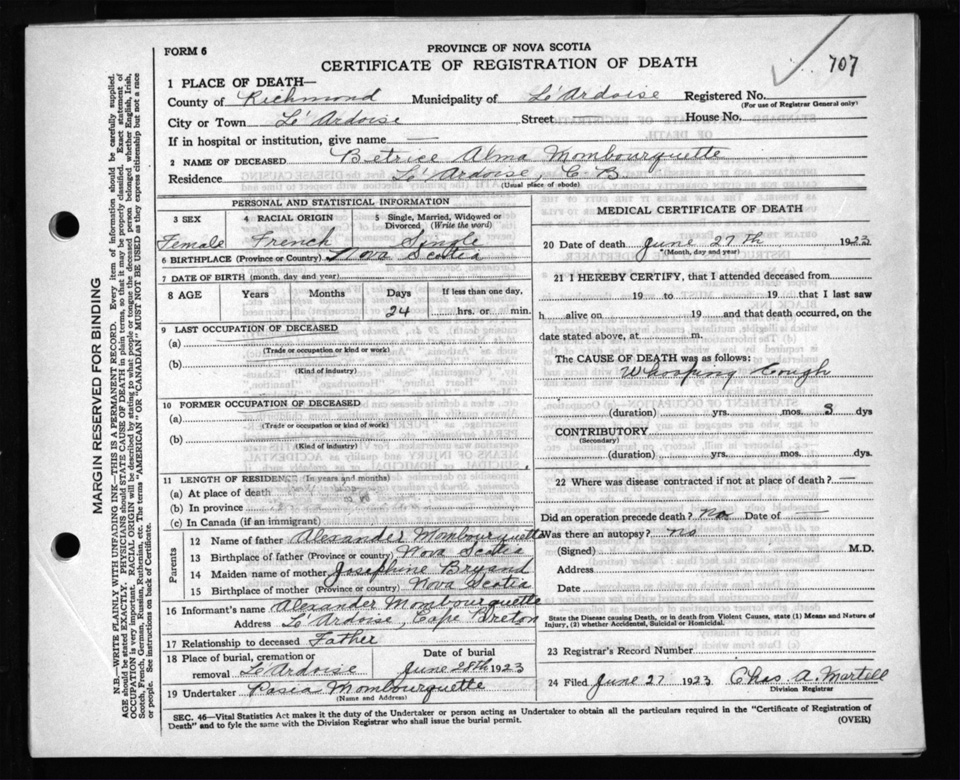 FORM 6
PROVINCE OF NOVA SCOTIA
CERTIFICATE OF REGISTRATION OF DEATH
707
1 PLACE OF DEATH—
County of Richmond Municipality of L'Ardoise Registered No.
(For use of Registrar General only)
City or Town L'Ardoise Street House No.
If in hospital or institution, give name —
2 NAME OF DECEASED Betrice Alma Mombourquette
Residence L'Ardoise, C B.
(Usual place of abode)
PERSONAL AND STATISTICAL INFORMATION
3 SEX 4 RACIAL ORIGIN 5 Single, Married, Widowed or Divorced (Write the word)
Female French Single
6 BIRTHPLACE (Province or Country) Nova Scotia
7 DATE OF BIRTH (month, day and year)
8 AGE Years Months Days If less than one day,
24 hrs. or min.
9 LAST OCCUPATION OF DECEASED
(a)
(Trade or occupation or kind or work)
(b)
(Kind of industry)
10 FORMER OCCUPATION OF DECEASED
(a)
(Trade or occupation or kind of work)
(b)
(Kind of industry)
11 LENGTH OF RESIDENCE (In years and months)
(a) At place of death
(b) In province
(c) In Canada (if an immigrant)
Parents
12 Name of father Alexander Mombourquette
13 Birthplace of father (Province or country) Nova Scotia
14 Maiden name of mother Josephine Brysnd
15 Birthplace of mother (Province or country) Nova Scotia
16 Informant's name Alexander Mombourquette
Address L'Ardoise, Cape Breton
17 Relationship to deceased Father
18 Place of burial, cremation or removal L'Ardoise
Date of burial
June 28th 1923
19 Undertaker Mombourquette
(Name and Address)
MEDICAL CERTIFICATE OF DEATH
20 Date of death June 27th 1923
(Month, day and year)
21 I HEREBY CERTIFY, that I attended deceased from
19 to 19 that I last saw
h alive on 19 and that death occurred, on the
date stated above, at m.
The CAUSE OF DEATH was as follows:
Whooping Cough
(duration) yrs. mos. 8 dys
CONTRIBUTORY
(Secondary)
(duration) yrs. mos. dys.
22 Where was disease contracted if not at place of death? —
Did an operation precede death? No Date of —
Was there an autopsy? No
(Signed) M.D.
Address
Date
State the Disease causing Death, or in death from Violent Causes, state (1) Means and Nature of Injury, (2) whether Accidental, Suicidal or Homicidal.
23 Registrar's Record Number
24 Filed June 27 1923 Chas. A. Martell
Division Registrar
SEC. 46—Vital Statistics Act makes it the duty of the Undertaker or person acting as Undertaker to obtain all the particulars required in the "Certificate of Registration of
Death" and to fyle the same with the Division Registrar who shall issue the burial permit.
(OVER)
MARGIN RESERVED FOR BINDING
N.B.—WRITE PLAINLY WITH UNFADING INK—THIS IS A PERMANENT RECORD. Every item of information should be carefully supplied.
AGE should be stated EXACTLY. PHYSICIANS should STATE CAUSE OF DEATH in plain terms, so that it may be properly classified. Exact statement of
OCCUPATION is very important. RACIAL ORIGIN will be described by stating to what people or tongue the deceased person belonged whether English, Irish,
Scotch, French, German, Russian, Ruthenian, etc. The terms "AMERICAN" OR "CANADIAN" MUST NOT BE USED as they express citizenship but not a race
or people. See instructions on back of Certificate.